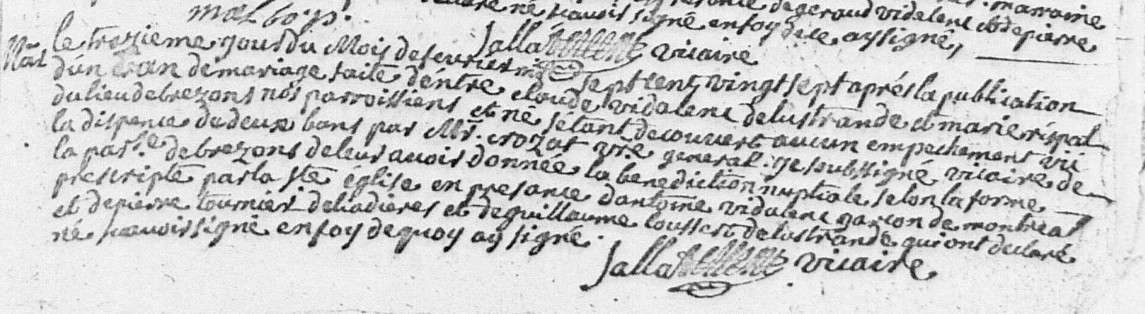 marraine
ne scavoir signé enfoy de ce aysigné, geraud vidalenc et de pierre
malbo
vicaire
Mar
le trezieme jour du Mois defeurier mil sept cent vingt sept aprés la publication
d'un ban demariage faite d'entre claude vidalenc delustrande et marie rispal
dulieu debrezons nos parroissiens et né sétant decouvert aucun empechement vû
la dispence de deux bans par Mr. crozat vre general. je subssigné vicaire de
la parle debrezons deleur avoir donnée la benediction nuptiale selon la forme
prescripte par la ste eglise en presance d'antoine vidalenc garcon de montreal
et depierre tournier deliadieres et deguillaume loussert delustrande qui ont declaré
né scavoir signé en foy de quoy ay signé.
vicaire